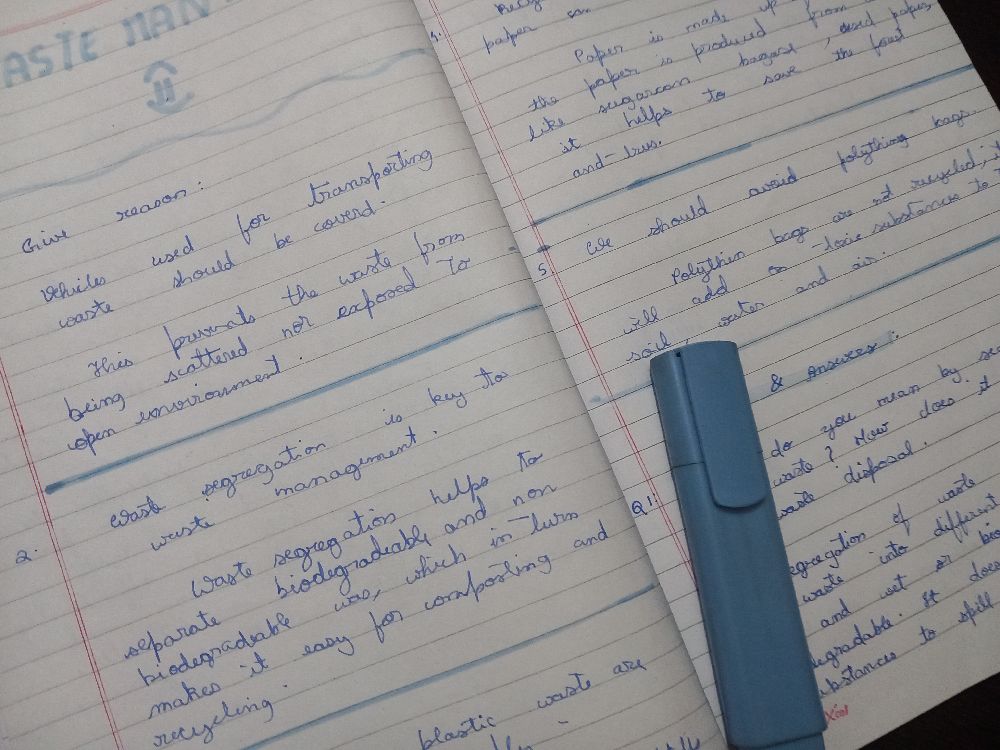 ASTE MAN
Give reason:
Vehicles used for transporting
waste should be coverd.
This prevents the waste from
being scattered nor exposed to
open environment.
2. Waste segregation is key to
waste management.
Waste segregation helps to
separate biodegradeable and non
biodegradeable was, which in-turn
makes it easy for composting and
recycling.
plastic waste are
4.
paper can
Paper is made up
the paper is produced from
like sugarcan bagase, used paper
it helps to save the
and
5. We should avoid polything bags.
Polythin bags are not recycled,
will add on toxic substances to
soil, water and air.
& Answers:
Q1. do you mean by
waste? How does it
waste disposal.
egregation of waste
waste into different
and wet or bio
degradable. It does
ubstances to spill